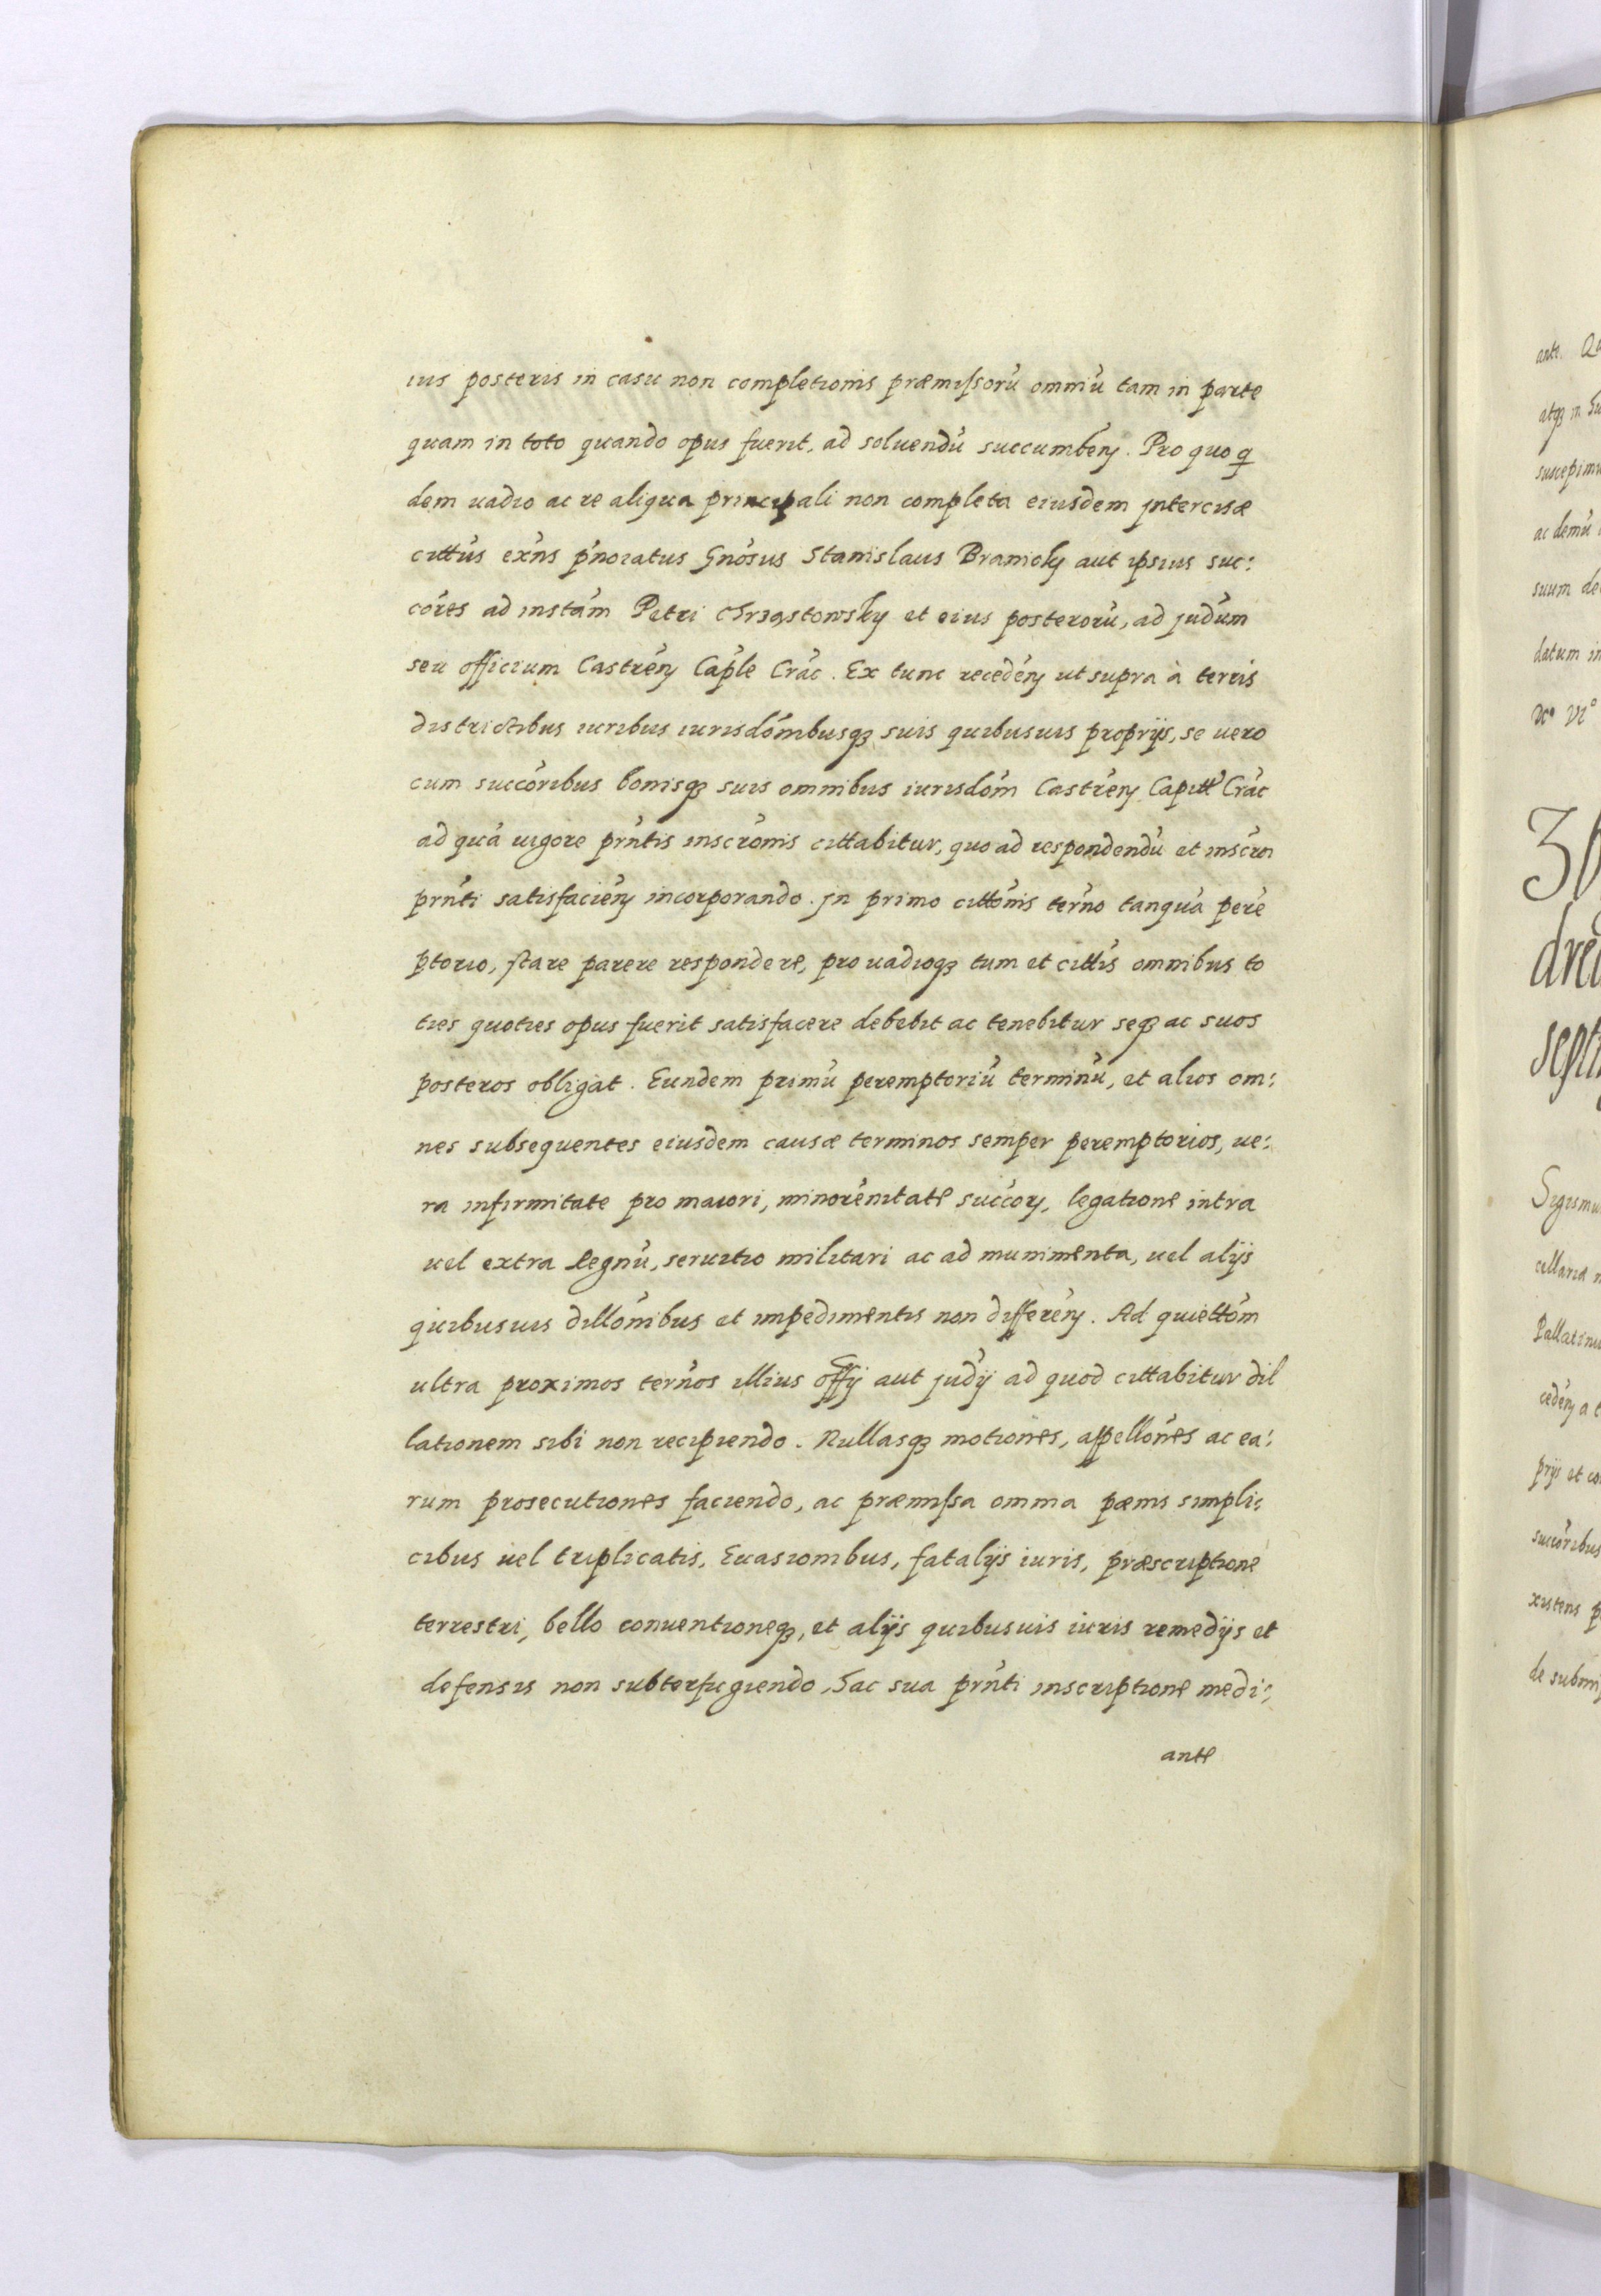 ius posteris in casu non completionis præmissorú omniú tam in parte
quam in toto quando opus fuerit, ad soluendú succumbeń. Pro quo q
dem uadio ac re aliqua principali non completa eiusdem jntercisæ
cittús exńs pńoiatus Gnósus Stanislaus Branicky aut ipsius suc:
córes ad instám Petri Chrząstowsky et eius posterorú, ad judúm
seu officium Castréń Cáple Crác. Ex tunc recedéń ut supra à terris
districtibus iuribus iurisdómbusq₃ suis quibusuis proprijs, se uero
cum succóribus bonisq₃ suis omnibus iurisdóm Castréń Capitt Crác
ad quá uigore prńtis inscrónis cittabitur, quo ad respondendú et inscrón
prńti satisfacień incorporando. Jn primo cittónis térno tanquá peré
ptorio, stare parere respondere, pro uadioq₃ tum et cittís omnibus to
ties quoties opus fuerit satisfacere debebit ac tenebitur seq₃ ac suos
posteros obligat. Eundem primú peremptoriú terminú, et alios om:
nes subsequentes eiusdem causæ terminos semper peremptorios, ue:
ra infirmitate pro maiori, minorénitate succorum, legatione intra
uel extra Regnú, seruitio militari ac ad munimenta, uel alijs
quibusuis dillónibus et impedimentis non differéń. Ad quiettóm
ultra proximos térnos illius offÿ aut judÿ ad quod cittabitur dil
lationem sibi non recipiendo. Nullasq₃ motiones, appellónes ac ea:
rum prosecutiones faciendo, ac præmissa omnia pœnis simpli:
cibus uel triplicatis, Euasionibus, fatalijs iuris, præscriptione
terrestri, bello conuentioneq₃, et alijs quibusuis iuris remedijs et
defensis non subterfugiendo, Hac sua prńti inscriptione medi:
ante